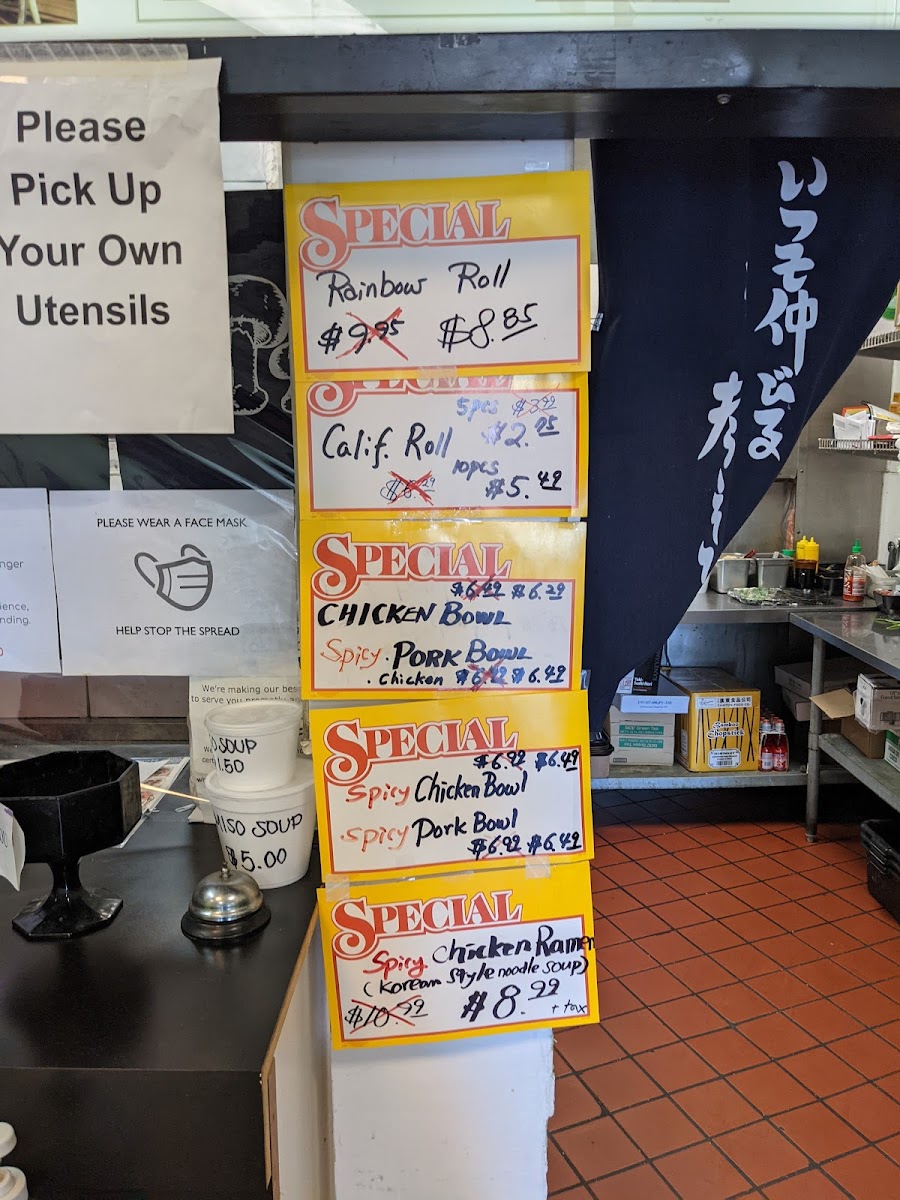 Please
Pick Up
Your Own
Utensils
PLEASE WEAR A FACE MASK
HELP STOP THE SPREAD
nger
ience,
nding.
We're making our bes
to serve you
SOUP
1.50
MISO SOUP
$5.00
SPECIAL
Rainbow Roll
$9.95 $8.85
SPECIAL
5pcs $3.99
Calif. Roll $2.75
10pcs
$5.49
SPECIAL
$6.29
CHICKEN BOWL
Spicy. PORK BOWL
. Chicken $6.92 $6.49
SPECIAL
$6.92 $6.49
Spicy Chicken Bowl
.Spicy Pork Bowl
$6.92 $6.49
SPECIAL
Spicy. Chicken Ramen
(Korean style noodle soup)
$10.99 $8.99
+ tax
いつそ仲
Bamboo
Chopstick